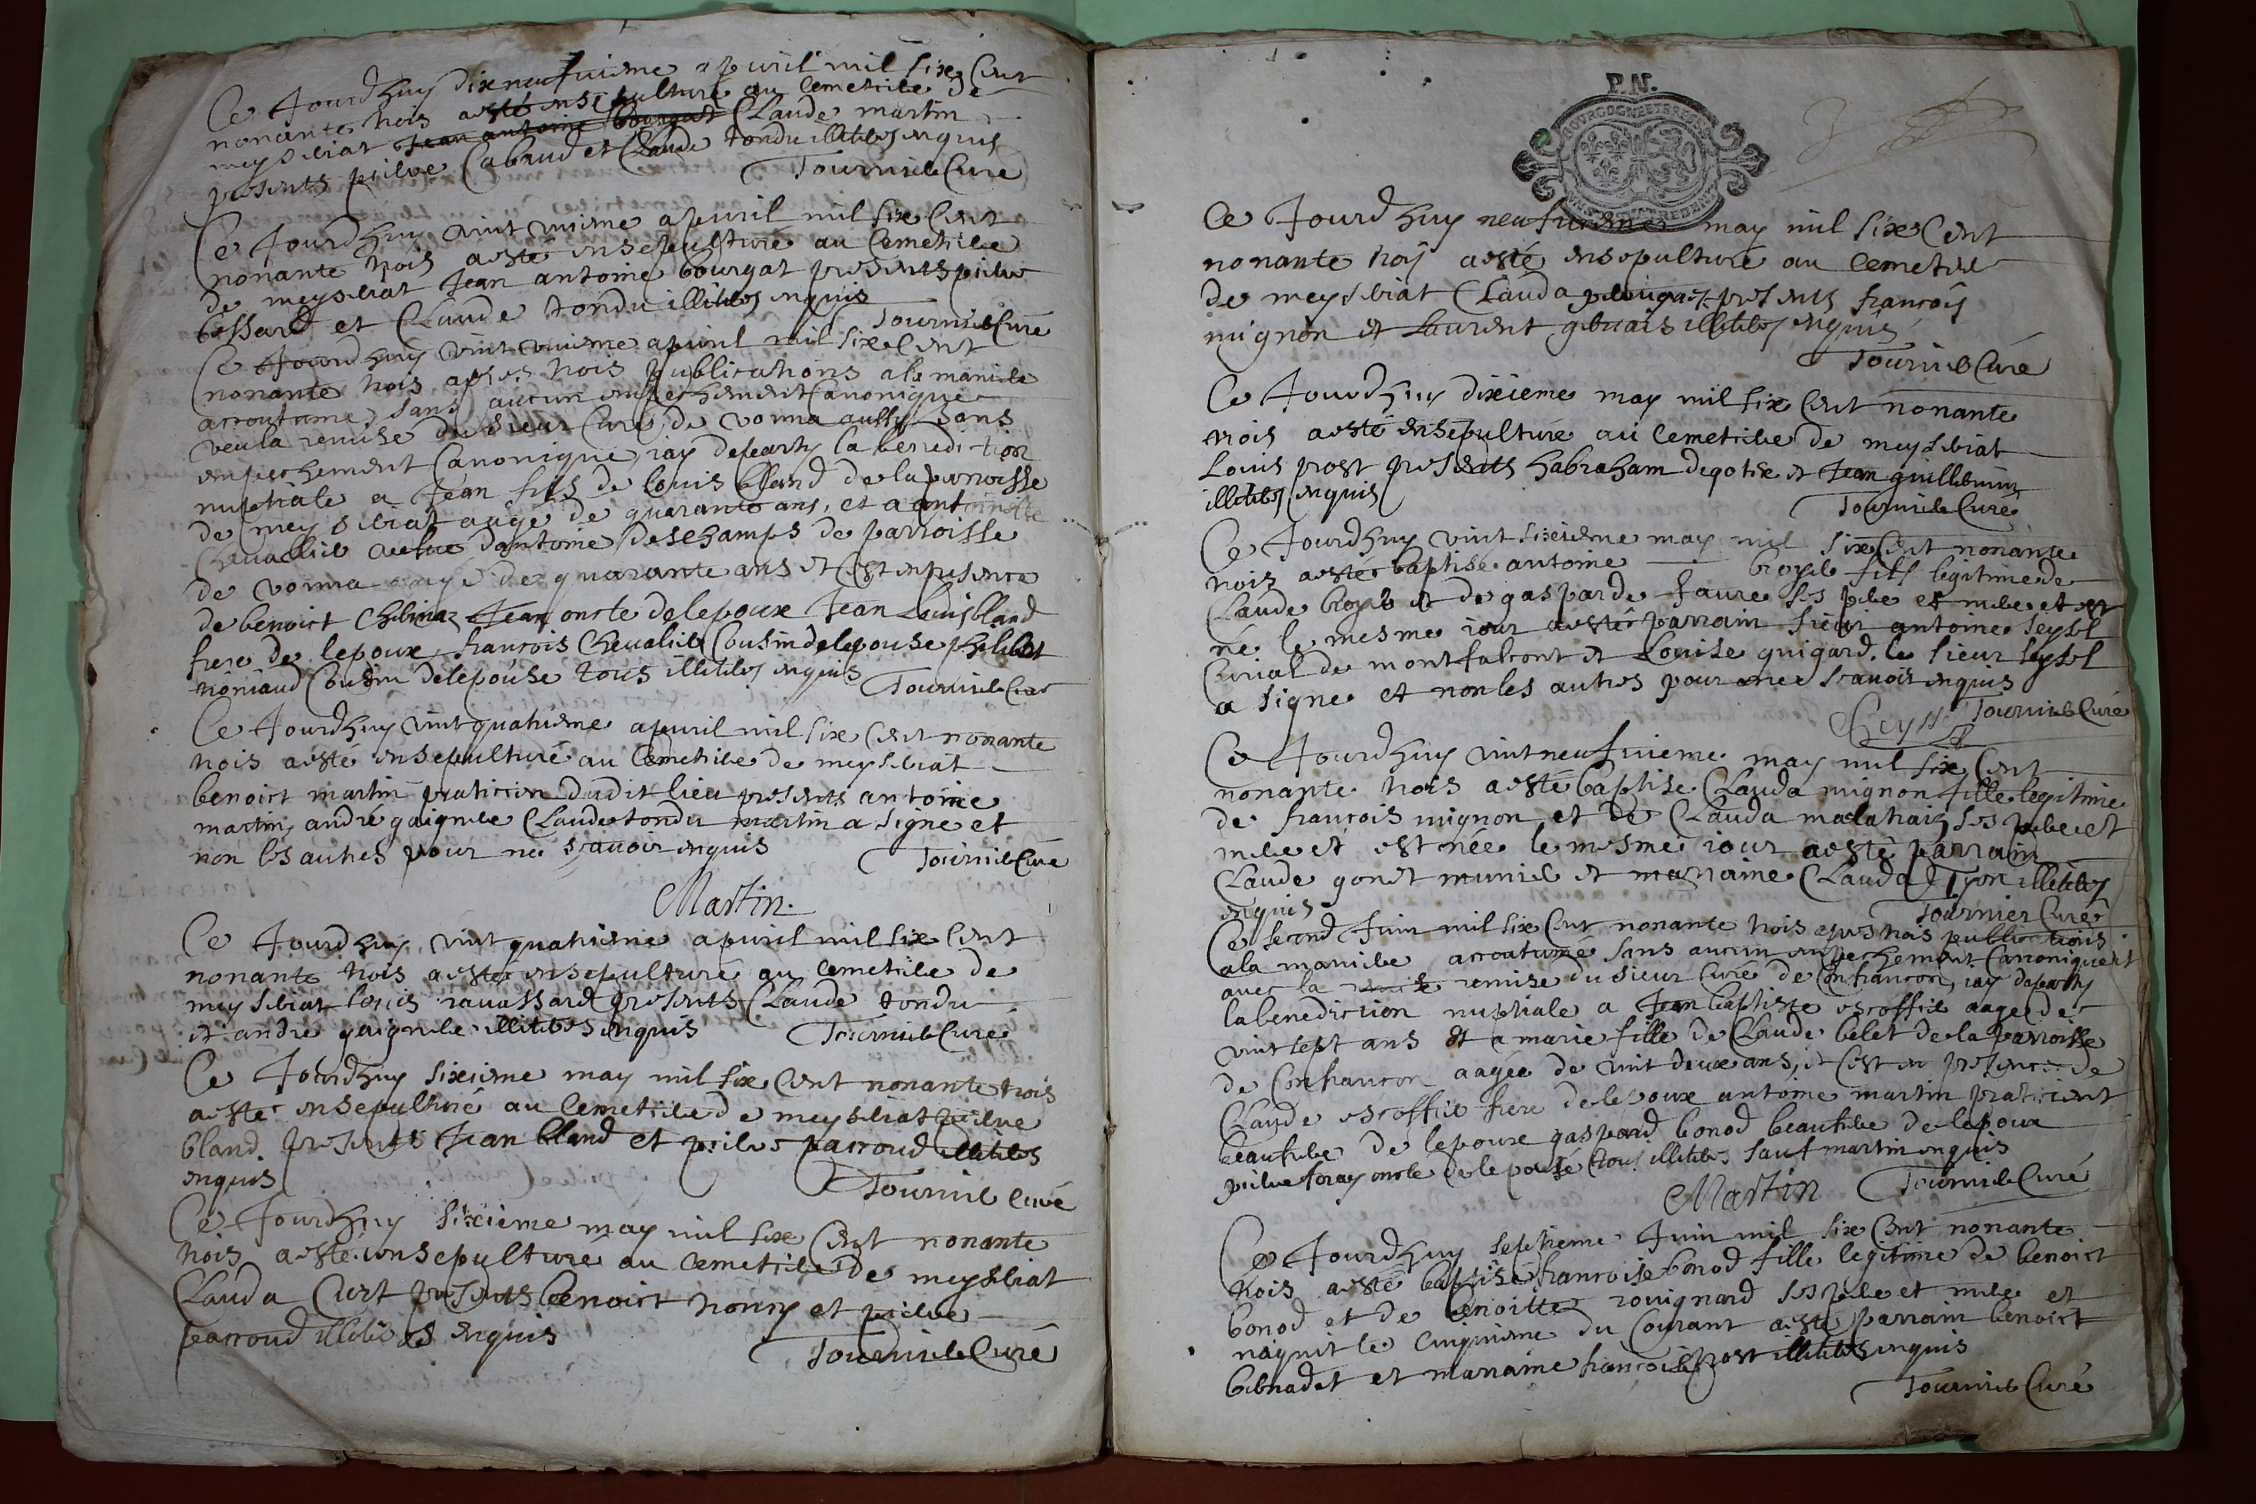 Ce Jourdhuy dixneufuieme apvril mil six Cent
nonante trois a esté ensepulturé au Cemetiere de
meyseriat Jean antoine bourgat Claude martin
presents pierre Cabaud et Claude tondu illiteres enquis
Tournier Curé
Ce Jourdhuy vint unieme apvril mil six Cent
nonante trois a esté ensepulturé au Cemetiere
de meyseriat Jean antoine bourgat presents pierre
bessard et Claude tondu illiteres enquis
Tournier Curé
Ce Jourdhuy vint unieme apvril mil six Cent
nonante trois apres trois publications a la maniere
accoutumé sans aucun empechement Canonique
veu la remise du sieur Curé de vonna aussy sans
empechement Canonique, iay departy la benediction
nuptiale a Jean fils de louis bland de la parroisse
de meyseriat aagé de quarante ans, et a antoinette
Chevallier vefve dantoine Deschamps de parroisse
de vonna aagé de quarante ans et Cest en presence
de benoict Jean oncle de lepoux Jean Louis bland
frere de lepoux, francois Chevalier Cousin de lepouse philibert
Cousin de lepouse tous illiteres enquis
Tournier Curé
Ce Jourdhuy vint quatrieme apvril mil six Cent nonante
trois a esté ensepulturé au Cemetiere de meyseriat
benoict martin praticien dudit lieu presents antoine
martin, andré gaignere Claude tondu martin a signé et
non les autres pour ne scavoir enquis
Tournier Curé
Martin
Ce Jourdhuy vint quatrieme apvril mil six Cent
nonante trois a esté ensepulturé au Cemetiere de
meyseriat louis ravassard presents Claude tondu
et andré gaignere illiteres enquis
Tournier Curé
Ce Jourdhuy sixieme may mil six Cent nonante trois
a esté ensepulturé au Cemetiere de meyseriat pierre
bland presents Jean bland et pierre parroud illiteres
enquis
Tournier Curé
Ce Jourdhuy sixieme may mil six Cent nonante
trois a esté ensepulturé au Cemetiere De meyseriat
Clauda Cort presents benoict et pierre
parroud illiteres enquis
Tournier Curé
P.N.
Ce Jourdhuy neufuieme may mil six Cent
nonante trois a esté ensepulturé au Cemetiere
de meyseriat Clauda presents francois
mignon et Laurent gervais illiteres enquis
Tournier Curé
Ce Jourdhuy dixieme may mil six Cent nonante
trois a esté ensepulturé au Cemetiere de meyseriat
Louis prost presents habraham et Jean guillermin
illiteres enquis
Tournier Curé
Ce Jourdhuy vint sixieme may mil six Cent nonante
trois a esté baptisé antoine royer fils legitime de
Claude royer et de gasparde faure ses pere et mere et est
né le mesme iour a esté parrain sieur antoine seyssel
Curial de montfalcont et Louise guigard. le sieur seyssel
a signé et non les autres pour ne scavoir enquis
Tournier Curé
Ce Jourdhuy vint neufuieme may mil six Cent
nonante trois a esté baptisé Clauda mignon fille legitime
de francois mignon et de Clauda ses pere et
mere et est née le mesme iour a esté parrain
Claude gonet munier et marraine Clauda Tyon illiteres
enquis
Tournier Curé
Ce second Juin mil six Cent nonante trois apres trois publications
a la maniere accoutumé sans aucun empechement Canonique et
avec la remise du sieur Curé de Confrancon, iay departy
la benediction nuptiale a Jean baptiste escoffier aagé de
vint sept ans et a marie fille de Claude belet de la parroisse
de Confrancon aagée de vint deux ans, et Cest en presence de
Claude escoffier frere de lepoux antoine martin praticient
beaufrere de lepoux gaspard bonod beaufrere de lepoux
pierre foray oncle de lepouse tous illiteres sauf martin enquis
Martin Tournier Curé
Ce Jourdhuy septieme Juin mil six Cent nonante
trois a esté baptisé francoise bonod fille legitime de benoict
bonod et de benoitte rouignard ses pere et mere et
naquit le cinquieme du Courant a esté parrain benoict
bernadet et marraine francoise prost illiteres enquis
Tournier Curé